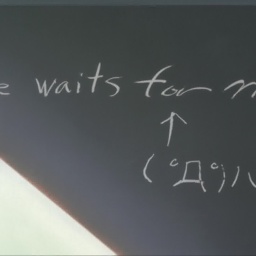 e waits for m
↑
(゚Д゚;)ハ